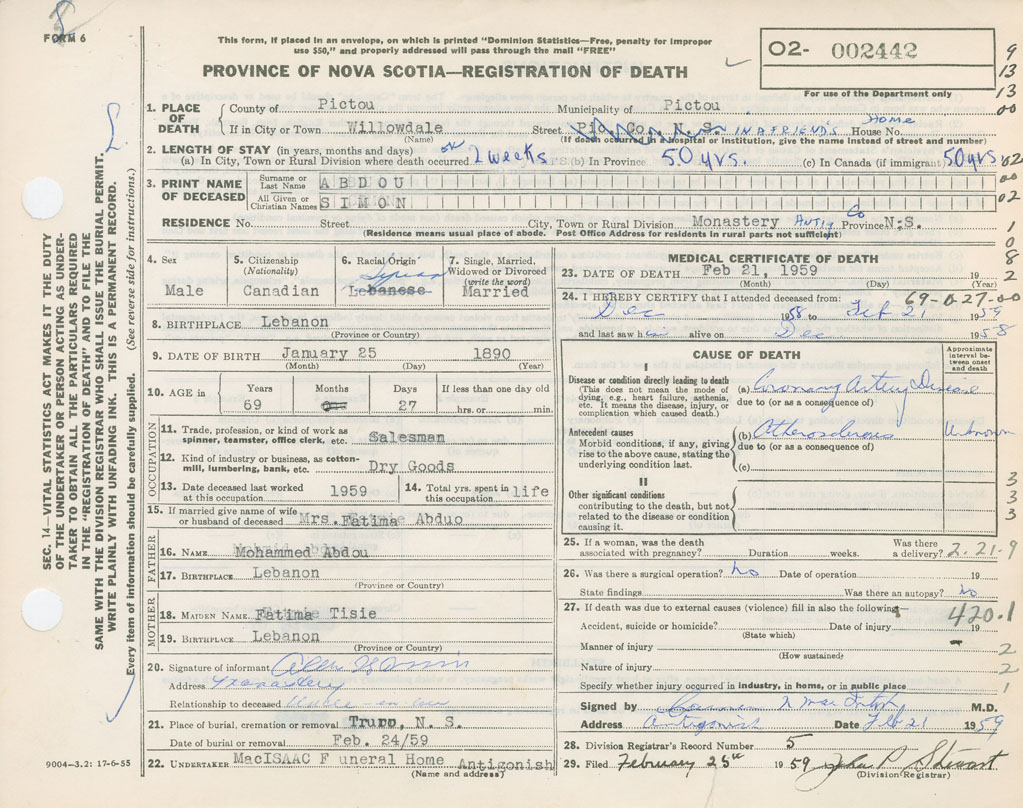 FORM 6
This form, if placed in an envelope, on which is printed "Dominion Statistics—Free, penalty for improper
use $50," and properly addressed will pass through the mail "FREE"
PROVINCE OF NOVA SCOTIA—REGISTRATION OF DEATH
O2- 002442
For use of the Department only
9
13
13
00
1. PLACE OF DEATH
County of Pictou Municipality of Pictou
If in City or Town Willowdale Street Pic. Co. N. S. IN A FRIEND'S Home House No.
(Name) (If death occurred in a hospital or institution, give the name instead of street and number)
2. LENGTH OF STAY (in years, months and days)
(a) In City, Town or Rural Division where death occurred 2 weeks (b) In Province 50 yrs. (c) In Canada (if immigrant) 50 yrs
02
00
02
3. PRINT NAME OF DECEASED
Surname or Last Name ABDOU
All Given or Christian Names SIMON
RESIDENCE No. Street City, Town or Rural Division Monastery Antig Co Province N.S.
(Residence means usual place of abode. Post Office Address for residents in rural parts not sufficient)
1
0
8
2
4. Sex
Male
5. Citizenship
(Nationality)
Canadian
6. Racial Origin
Syrian
Lebanese
7. Single, Married,
Widowed or Divorced
(write the word)
Married
8. BIRTHPLACE Lebanon
(Province or Country)
9. DATE OF BIRTH January 25 1890
(Month) (Day) (Year)
10. AGE in
Years Months Days If less than one day old
69 27 hrs. or min.
OCCUPATION
11. Trade, profession, or kind of work as
spinner, teamster, office clerk, etc. Salesman
12. Kind of industry or business, as cotton-
mill, lumbering, bank, etc. Dry Goods
13. Date deceased last worked
at this occupation 1959
14. Total yrs. spent in
this occupation life
15. If married give name of wife
or husband of deceased Mrs. Fatima Abduo
FATHER
16. NAME Mohammed Abdou
17. BIRTHPLACE Lebanon
(Province or Country)
MOTHER
18. MAIDEN NAME Fatima Tisie
19. BIRTHPLACE Lebanon
(Province or Country)
20. Signature of informant
Address Monastery
Relationship to deceased
21. Place of burial, cremation or removal Truro, N. S.
Date of burial or removal Feb. 24/59
22. UNDERTAKER MacISAAC F uneral Home Antigonish
(Name and address)
MEDICAL CERTIFICATE OF DEATH
23. DATE OF DEATH Feb 21, 1959 19
(Month) (Day) (Year)
24. I HEREBY CERTIFY that I attended deceased from: 69-0-27-00
Dec 1958 to Feb 21 1959
and last saw him alive on Dec 1958
CAUSE OF DEATH
Approximate
interval be-
tween onset
and death
I
Disease or condition directly leading to death
(This does not mean the mode of
dying, e.g., heart failure, asthenia,
etc. It means the disease, injury, or
complication which caused death.)
(a) Coronary Artery Disease
due to (or as a consequence of)
Antecedent causes
Morbid conditions, if any, giving
rise to the above cause, stating the
underlying condition last.
(b) Atherosclerosis Unknown
due to (or as a consequence of)
(c)
II
Other significant conditions
contributing to the death, but not
related to the disease or condition
causing it.
3
3
3
25. If a woman, was the death
associated with pregnancy? Duration weeks. Was there
a delivery? 2.21.9
26. Was there a surgical operation? No Date of operation 19
State findings Was there an autopsy? No
27. If death was due to external causes (violence) fill in also the following—
420.1
Accident, suicide or homicide? Date of injury 19
(State which)
Manner of injury 2
(How sustained)
Nature of injury 2
Specify whether injury occurred in industry, in homes, or in public place 1
Signed by M.D.
Address Antigonish Date Feb 21 1959
28. Division Registrar's Record Number 5
29. Filed February 25th 1959 John P Stewart
(Division Registrar)
SEC. 14—VITAL STATISTICS ACT MAKES IT THE DUTY
OF THE UNDERTAKER OR PERSON ACTING AS UNDER-
TAKER TO OBTAIN ALL THE PARTICULARS REQUIRED
IN THE "REGISTRATION OF DEATH" AND TO FILE THE
SAME WITH THE DIVISION REGISTRAR WHO SHALL ISSUE THE BURIAL PERMIT.
WRITE PLAINLY WITH UNFADING INK. THIS IS A PERMANENT RECORD.
Every item of information should be carefully supplied. (See reverse side for instructions.)
9004-3.2: 17-6-55